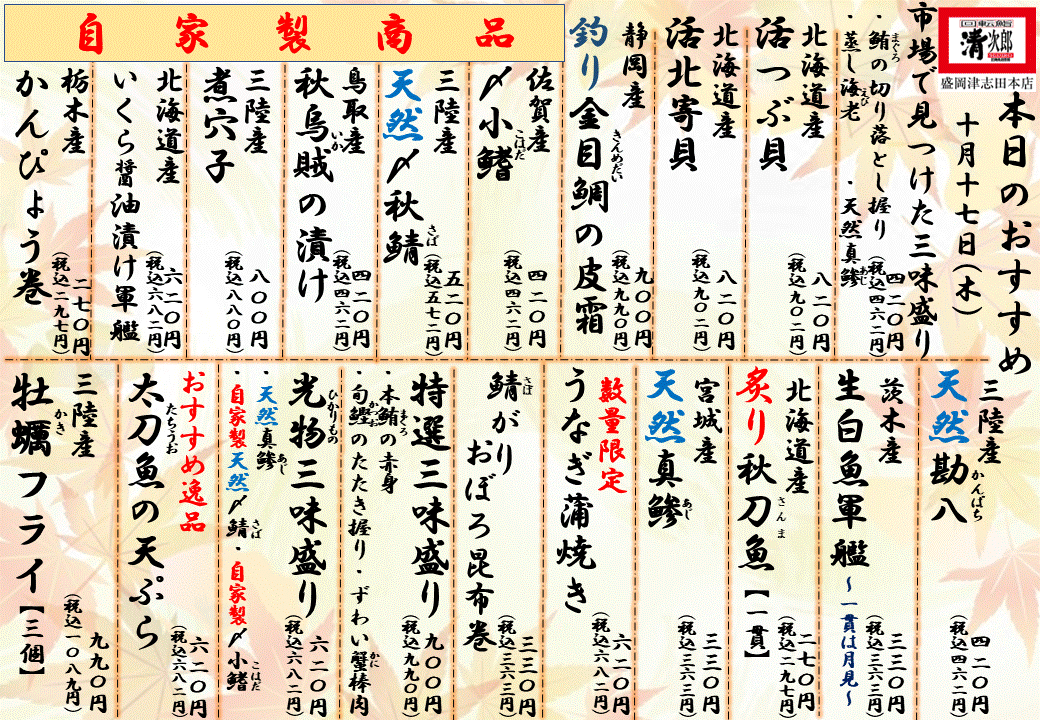 回転鮨
清次郎
盛岡津志田本店
本日のおすすめ
十月十七日(木)
市場で見つけた三味盛り
・鮪の切り落とし握り
まぐろ
・蒸し海老
えび
・天然真鯵
あじ
四二〇円
(税込四六二円)
北海道産
活つぶ貝
八二〇円
(税込九〇二円)
北海道産
活北寄貝
八二〇円
(税込九〇二円)
静岡産
釣り金目鯛の皮霜
きんめだい
九〇〇円
(税込九九〇円)
自家製商品
佐賀産
〆小鰭
こはだ
四二〇円
(税込四六二円)
三陸産
天然〆秋鯖
さば
五二〇円
(税込五七二円)
鳥取産
秋烏賊の漬け
いか
四二〇円
(税込四六二円)
三陸産
煮穴子
八〇〇円
(税込八八〇円)
北海道産
いくら醤油漬け軍艦
六二〇円
(税込六八二円)
栃木産
かんぴょう巻
二七〇円
(税込二九七円)
三陸産
天然勘八
かんぱち
四二〇円
(税込四六二円)
茨木産
生白魚軍艦
~一貫は月見~
三三〇円
(税込三六三円)
北海道産
炙り秋刀魚【一貫】
さんま
二七〇円
(税込二九七円)
宮城産
天然真鯵
あじ
三三〇円
(税込三六三円)
数量限定
うなぎ蒲焼き
六二〇円
(税込六八二円)
鯖がり
さば
おぼろ昆布巻
三三〇円
(税込三六三円)
特選三味盛り
・本鮪の赤身
まぐろ
・旬鰹のたたき握り・ずわい蟹棒肉
かつお
かに
九〇〇円
(税込九九〇円)
光物三味盛り
ひかりもの
・天然真鯵
あじ
・自家製天然〆鯖・自家製〆小鰭
さば
こはだ
六二〇円
(税込六八二円)
おすすめ逸品
太刀魚の天ぷら
たちうお
六二〇円
(税込六八二円)
三陸産
牡蠣フライ【三個】
かき
九九〇円
(税込一〇八九円)